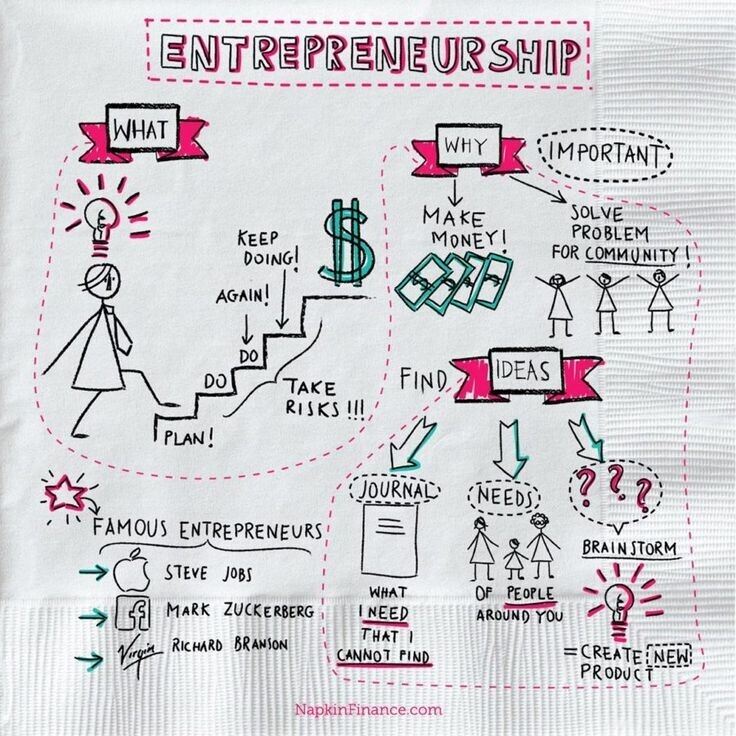 ENTREPRENEURSHIP
WHAT
KEEP
DOING!
AGAIN!
$
DO
DO
PLAN!
TAKE
RISKS!!!
WHY
IMPORTANT
MAKE
MONEY!
SOLVE
PROBLEM
FOR COMMUNITY!
FIND IDEAS
JOURNAL
WHAT
I NEED
THAT I
CANNOT FIND
NEEDS
OF PEOPLE
AROUND YOU
? ? ?
BRAINSTORM
= CREATE NEW
PRODUCT
FAMOUS ENTREPRENEURS
STEVE JOBS
f MARK ZUCKERBERG
Virgin RICHARD BRANSON
NapkinFinance.com